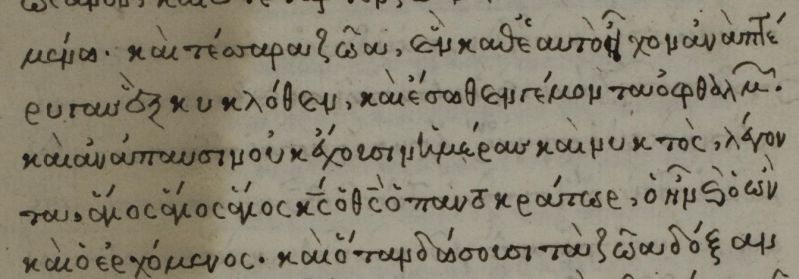 μένω. καὶ τέσσαρα ζῶα, ἓν καθ' ἑαυτὸ εἶχον ἀνὰ πτέ
ρυγας ἓξ κυκλόθεν, καὶ ἔσωθεν γέμοντα ὀφθαλμῶν.
καὶ ἀνάπαυσιν οὐκ ἔχουσιν ἡμέρας καὶ νυκτὸς, λέγον
τα, ἅγιος ἅγιος ἅγιος κς ὁ θς ὁ παντοκράτωρ, ὁ ἦν καὶ ὁ ὢν
καὶ ὁ ἐρχόμενος. καὶ ὅταν δώσουσι τὰ ζῶα δόξαν